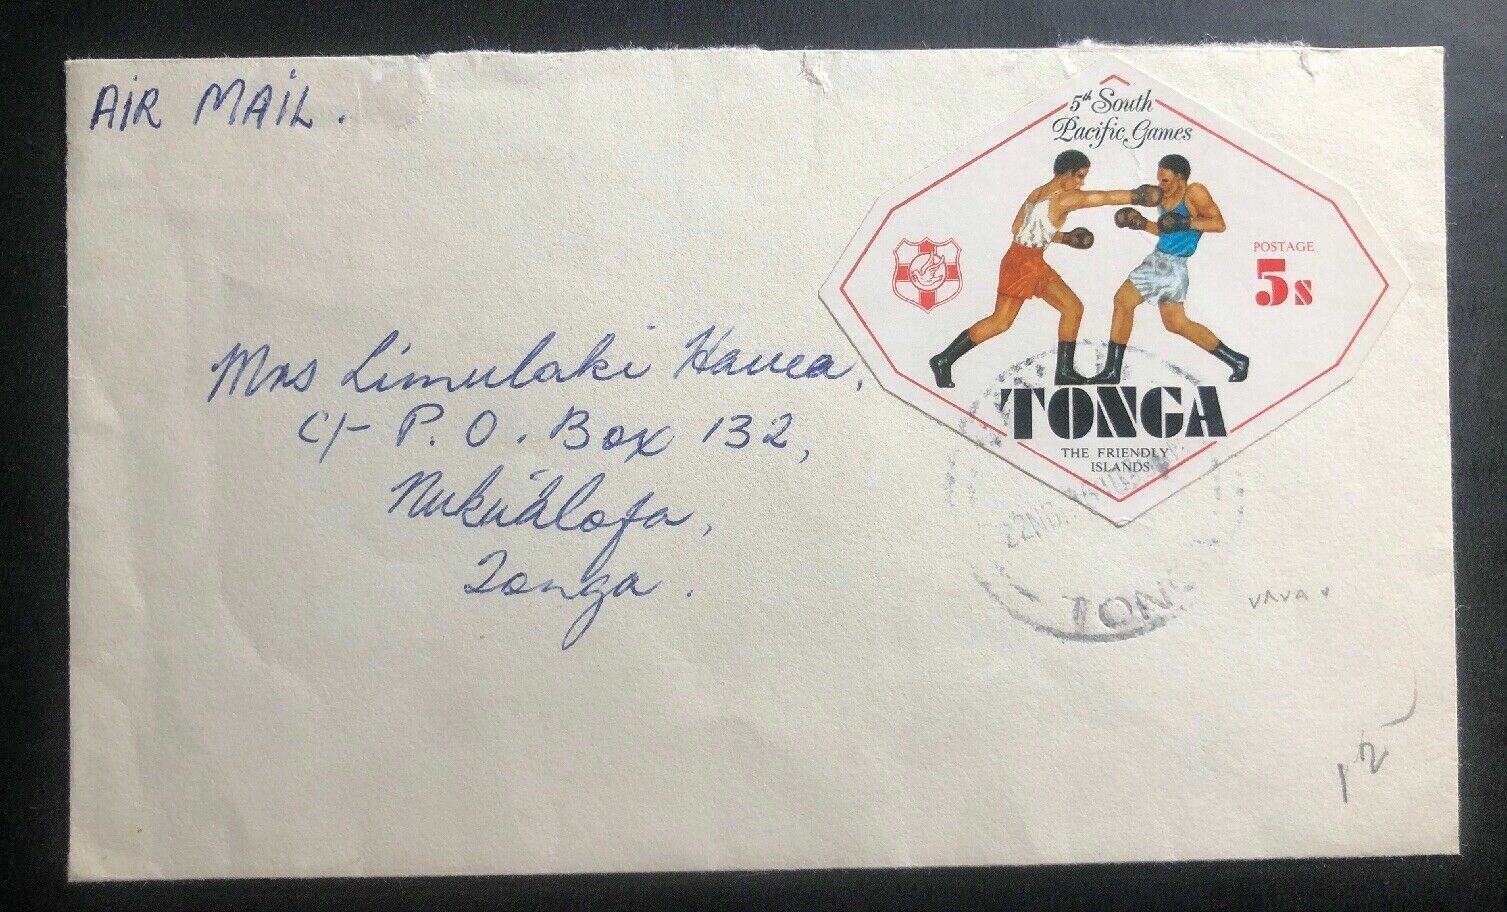 AIR MAIL.
5th South
Pacific Games
POSTAGE
5s
TONGA
THE FRIENDLY
ISLANDS
Mrs Limulaki Havea,
c/- P.O. Box 132,
Nuku'alofa,
Tonga.
22NO
TON
VAVA
12